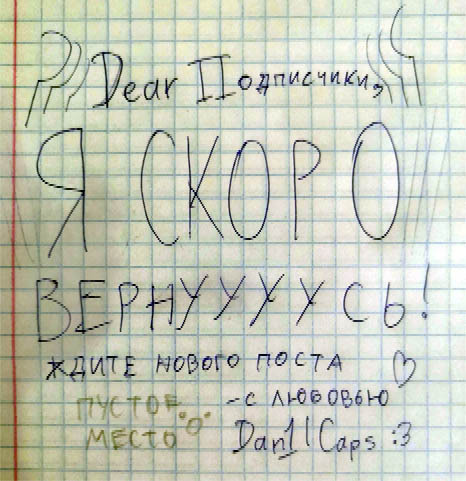 Dear Подписчики,
Я СКОРО
ВЕРНУУУУСЬ!
ЖДИТЕ НОВОГО ПОСТА ♡
ПУСТОЕ °О° -С ЛЮБОВЬЮ
МЕСТО Dan1l Caps :3